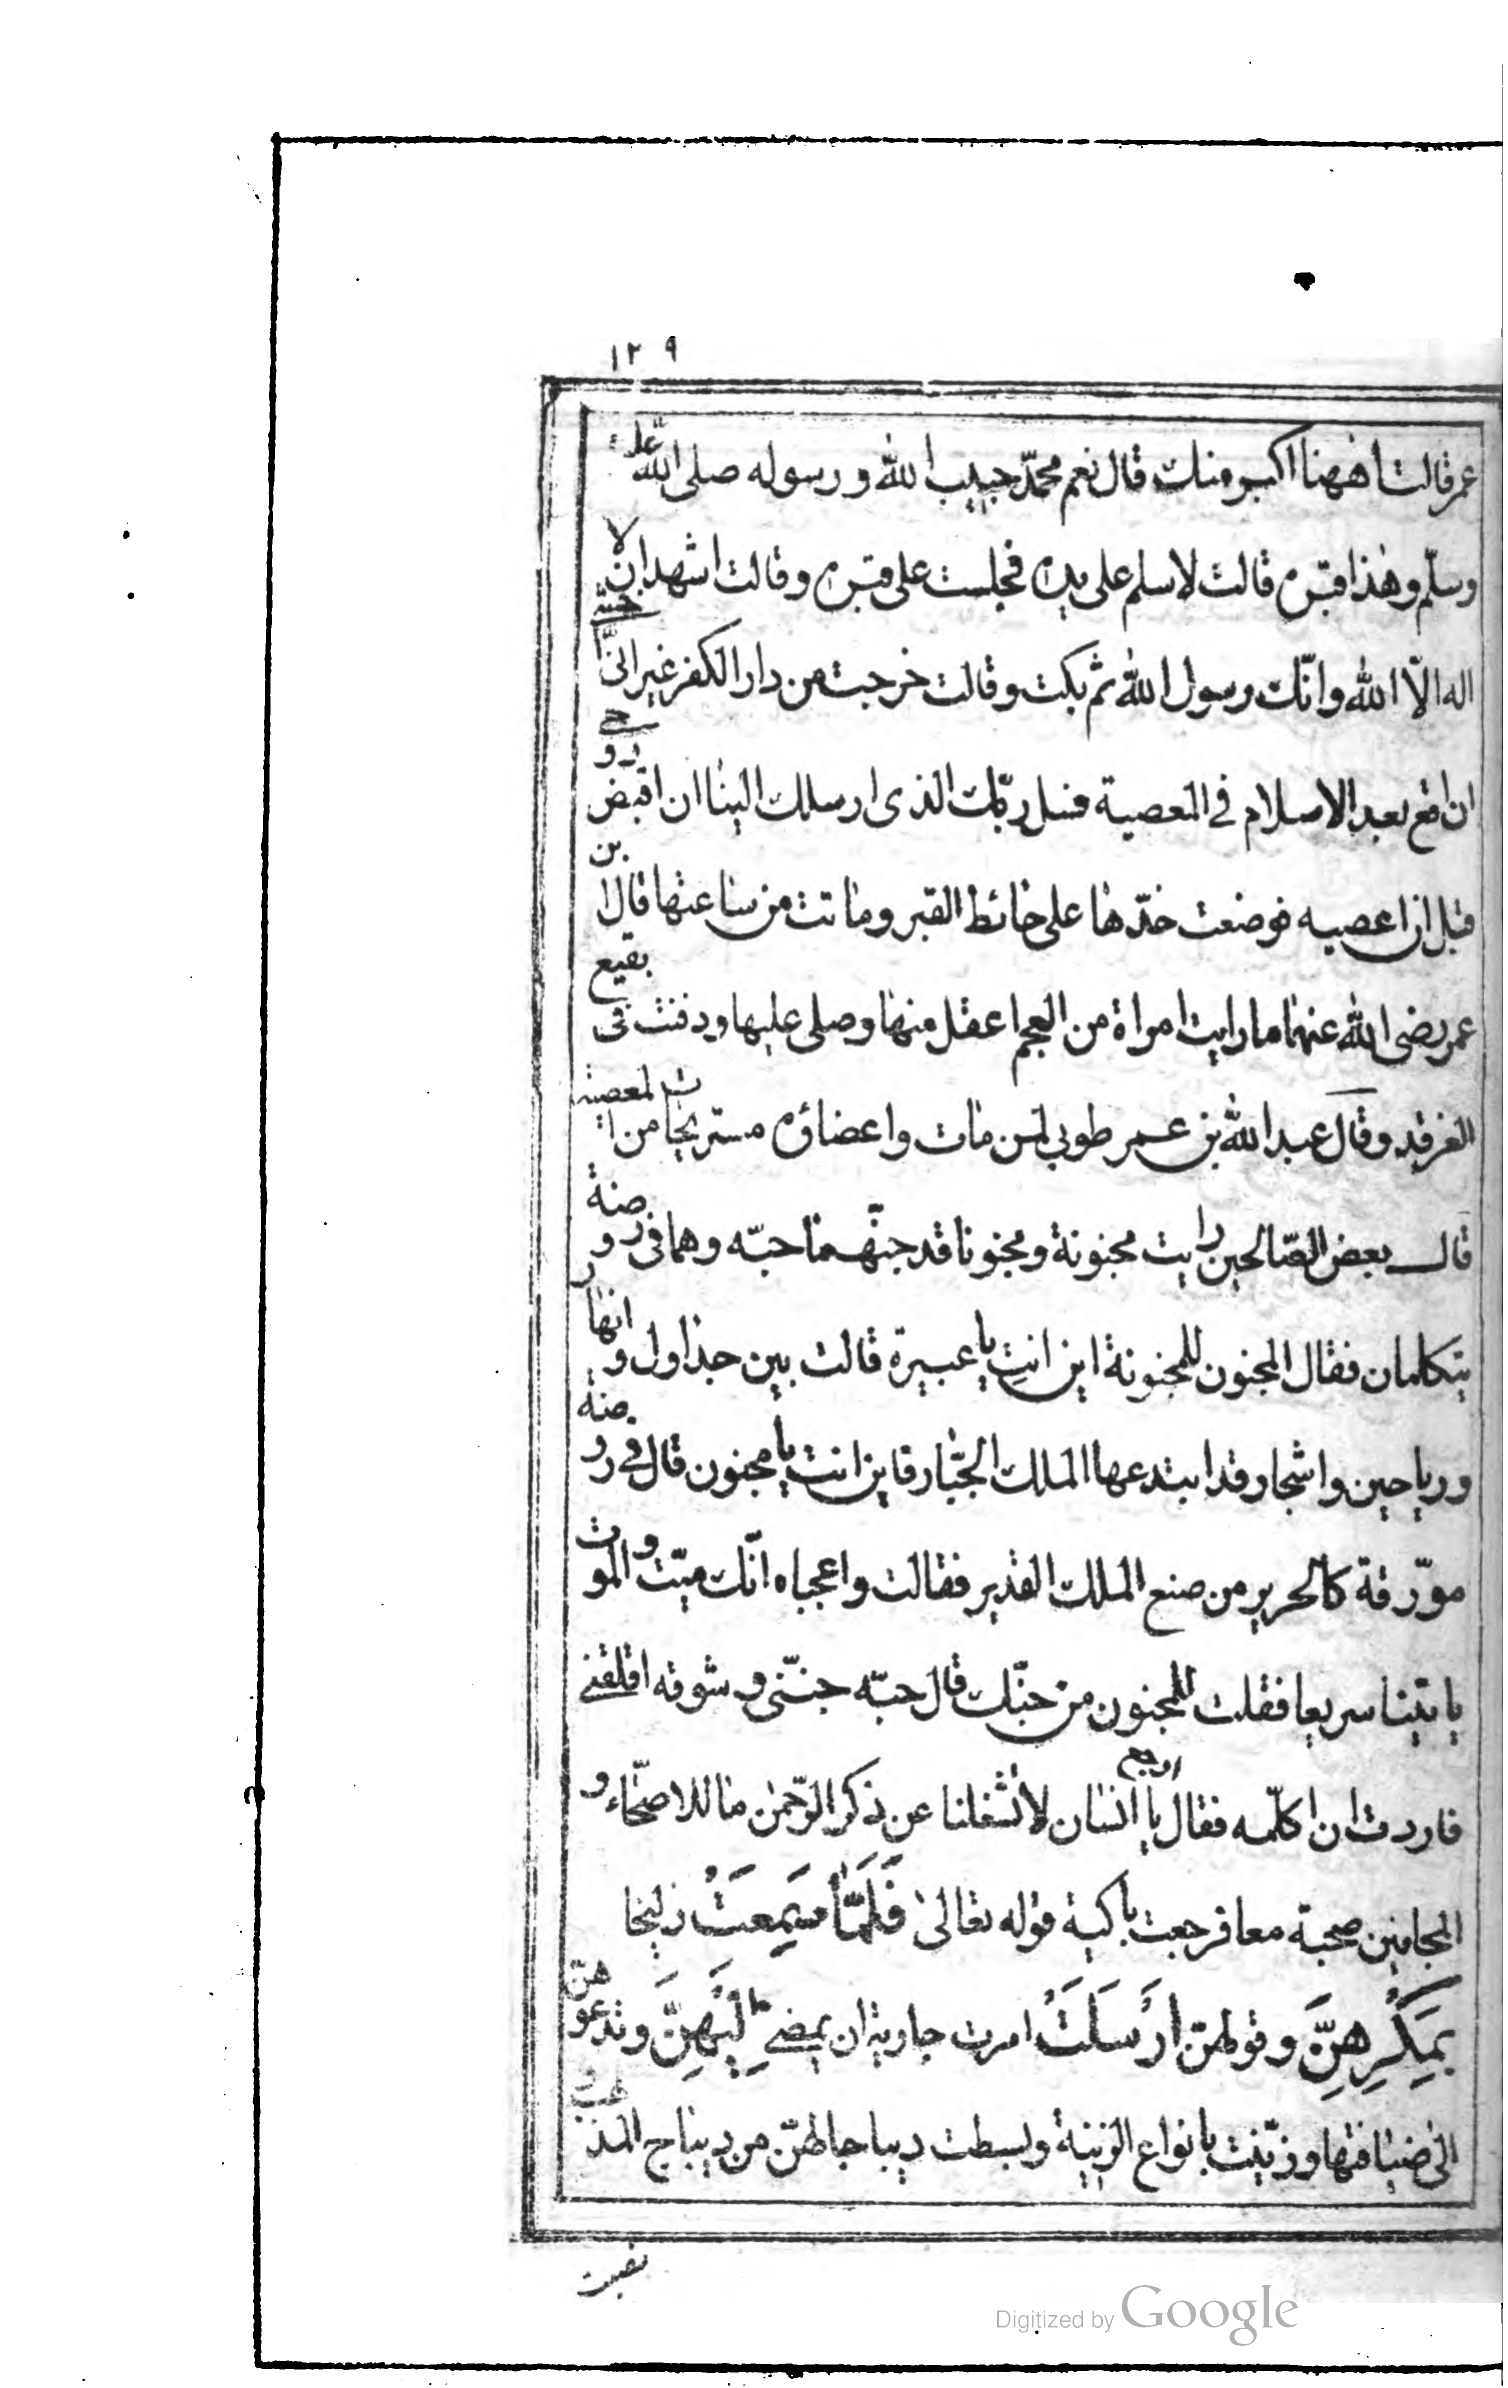 ١٢٩
عمر قالت أههنا اكبر منك قال نعم محمّد حبيب الله و رسوله صلى الله عليه
وسلّم وهذا قبره قالت لاسلم على يده فجلست على قبره وقالت اشهد ان لا
اله الّا الله وانّك رسول الله ثم بكت وقالت خرجت من دار الكفر غير انّى خشيت
ان اقع بعد الاسلام فى المعصية فسل ربّك الذى ارسلك الينا ان اقبض روحى
قبل ان اعصيه فوضعت خدّها على حائط القبر وماتت من ساعتها قال بن
عمر رضى الله عنهما ما رايت امراة من العجم اعقل منها وصلى عليها ودفنت فى بقيع
الغرقد وقال عبد الله بن عمر طوبى لمن مات واعضاؤه مستريحا من المعصية
قال بعض الصّالحين رايت مجنونة ومجنونا قد جنّهما حبّه وهما فى روضة
يتكلمان فقال المجنون للمجنونة اين انتِ يا عبيرة قالت بين جداول وانهار
ورياحين واشجار قد ابتدعها الملك الجبّار فاين انت يا مجنون قال فى روضة
مورّقة كالحرير من صنع الملك القدير فقالت واعجباه انّك ميّت والموت
ياتينا سريعا فقلت للمجنون من حبّك قال حبّه جنّنى وشوقه اقلقنى
فاردت ان اكلّمه فقال يا انسان ارجع لا تشغلنا عن ذكر الرّحمن ما للاصحّاء و
المجانين صحبة معا فرجعت باكية قوله تعالى فَلَمَّا سَمِعَتْ زليخا
بِمَكْرِهِنَّ وقولهنّ اَرْسَلَتْ امرت جارية ان يمضى اِلَيْهِنَّ وتدعوهنّ
الى ضيافتها وزيّنت بانواع الزينة وبسطت ديباجا لهنّ من ديباج المذهب و
نصبت
Digitized by Google